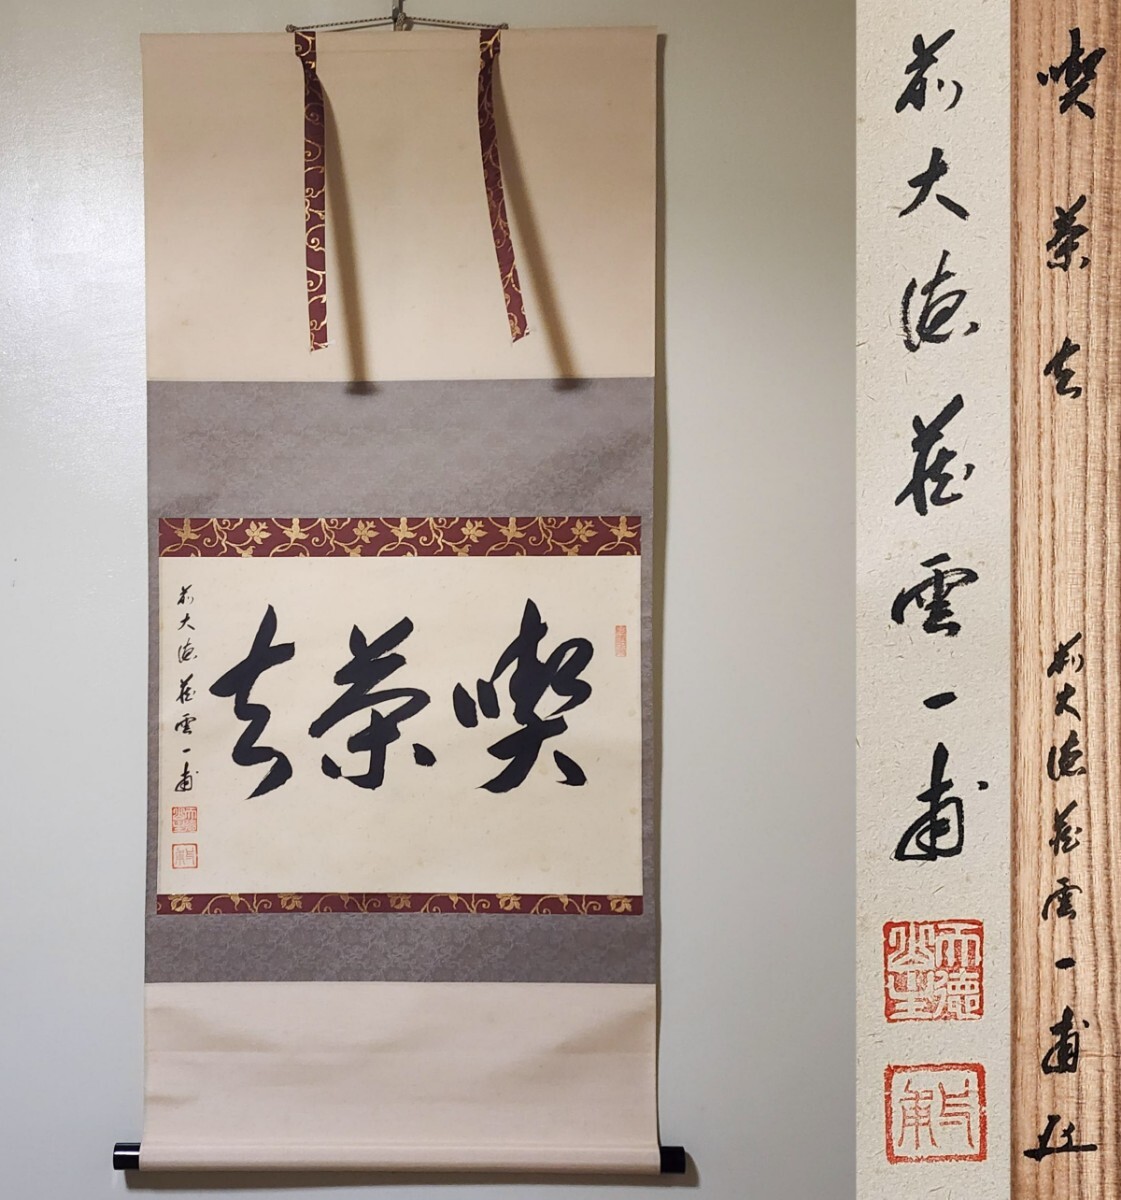 喫茶去
前大徳藏雲一甫
前大徳藏雲一甫
喫茶去
前大徳藏雲一甫